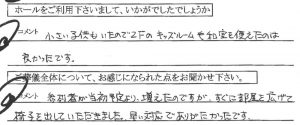 ホールをご利用下さいまして、いかがでしたでしょうか
コメント 小さい子供もいたので2Fのキッズルームや和室を使えたのは
良かったです。
ご葬儀全体について、お感じになられた点をお聞かせ下さい。
コメント 参列者が当初予定より、増えたのですが、すぐに部屋を広げて
椅子を出していただきました。早い対応でありがたかったです。